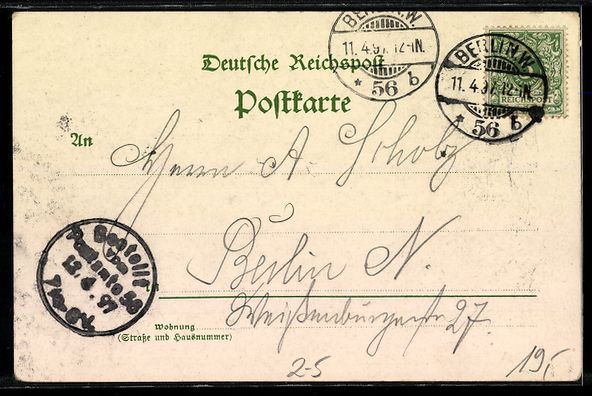 BERLIN.W.
11.4.97.12-1N.
* 56 b
BERLIN.W.
11.4.97.12-1N.
* 56 b
REICHSPOST
Deutsche Reichspost
Postkarte
An
Herrn A. Scholz
Berlin N.
Weißenburgerstr 27.
Bestellt
vom
Postamte 58
12.4.97
Wohnung
(Straße und Hausnummer)
2-5
19,-